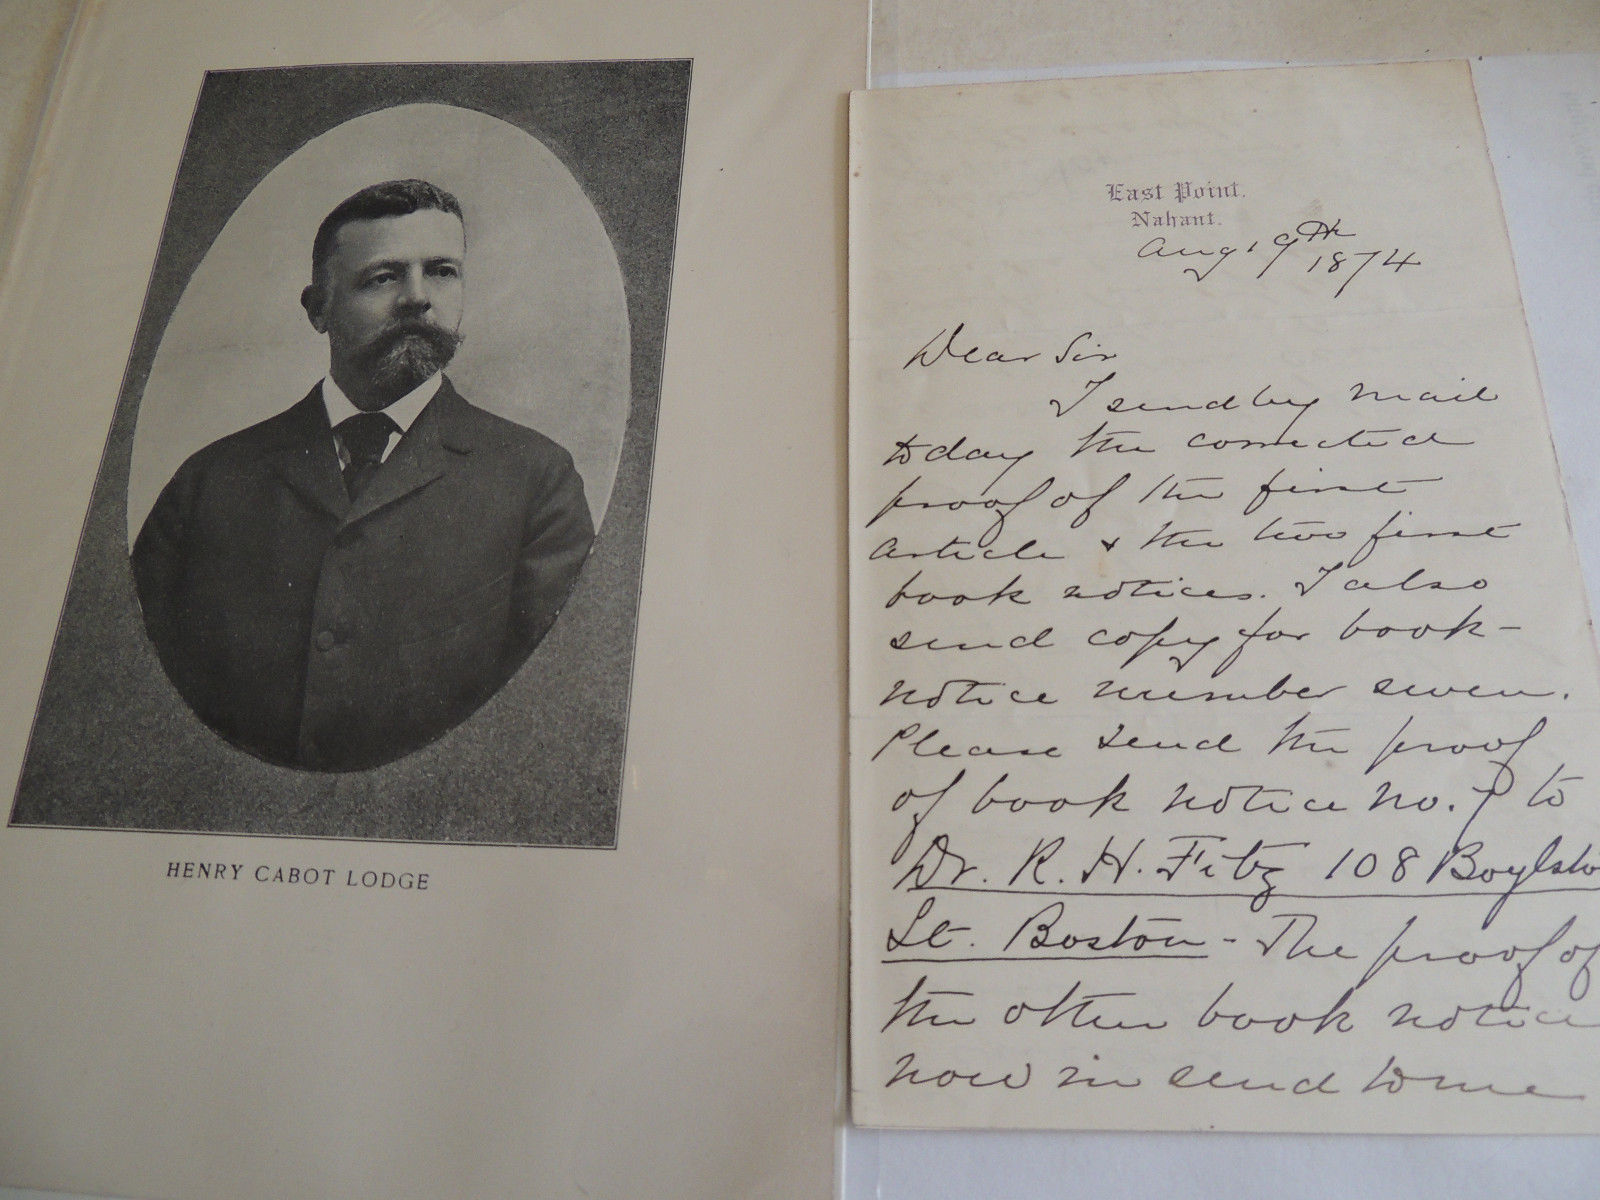 HENRY CABOT LODGE
East Point.
Nahant.
Aug 19th
1874
Dear Sir
I send by mail
today the corrected
proof of the first
article & the two first
book notices. I also
send copy for book-
notice number seven.
Please send the proof
of book notice no. 7 to
Dr. R. H. Fitz 108 Boylsto
St. Boston - The proof of
the other book notice
now in send to me